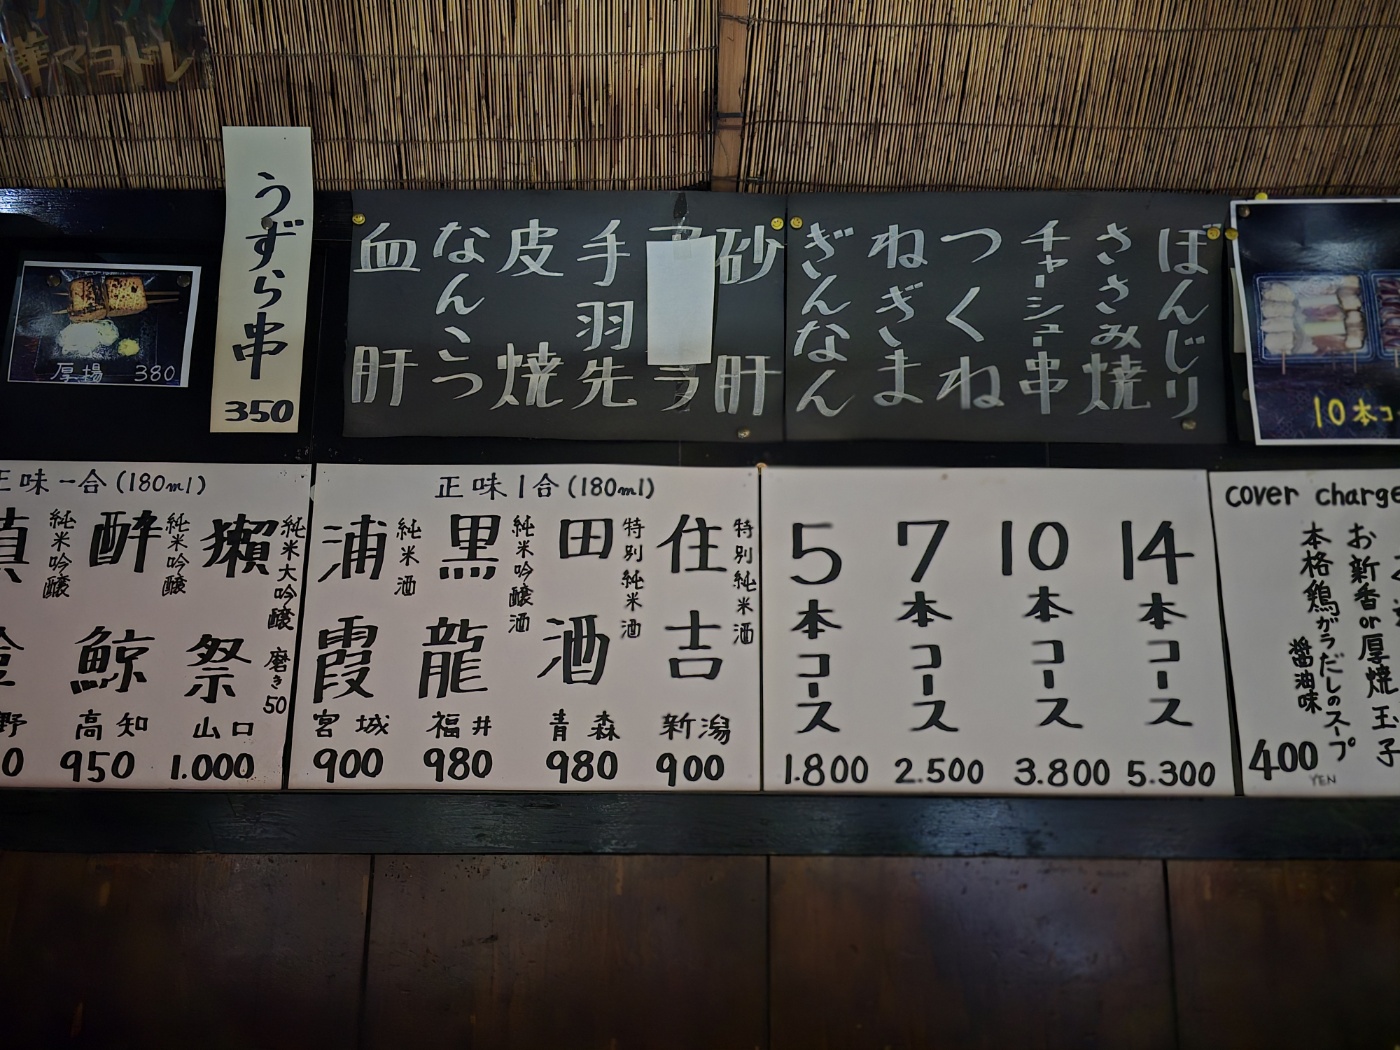 華マヨドレ
うずら串
350
厚揚 380
ぼんじり
ささみ焼
チャーシュー串
つくね
ねぎま
ぎんなん
砂肝
ラ
手羽先
皮焼
なんこつ
血肝
10本コ
正味一合(180ml)
純米大吟醸 磨き50
獺祭
山口
1.000
純米吟醸
酔鯨
高知
950
純米吟醸
野
0
正味1合(180ml)
特別純米酒
住吉
新潟
900
特別純米酒
田酒
青森
980
純米吟醸酒
黒龍
福井
980
純米酒
浦霞
宮城
900
5本コース
1.800
7本コース
2.500
10本コース
3.800
14本コース
5.300
cover charge
お新香or厚焼玉子
本格鶏ガラだしのスープ
醤油味
400
YEN